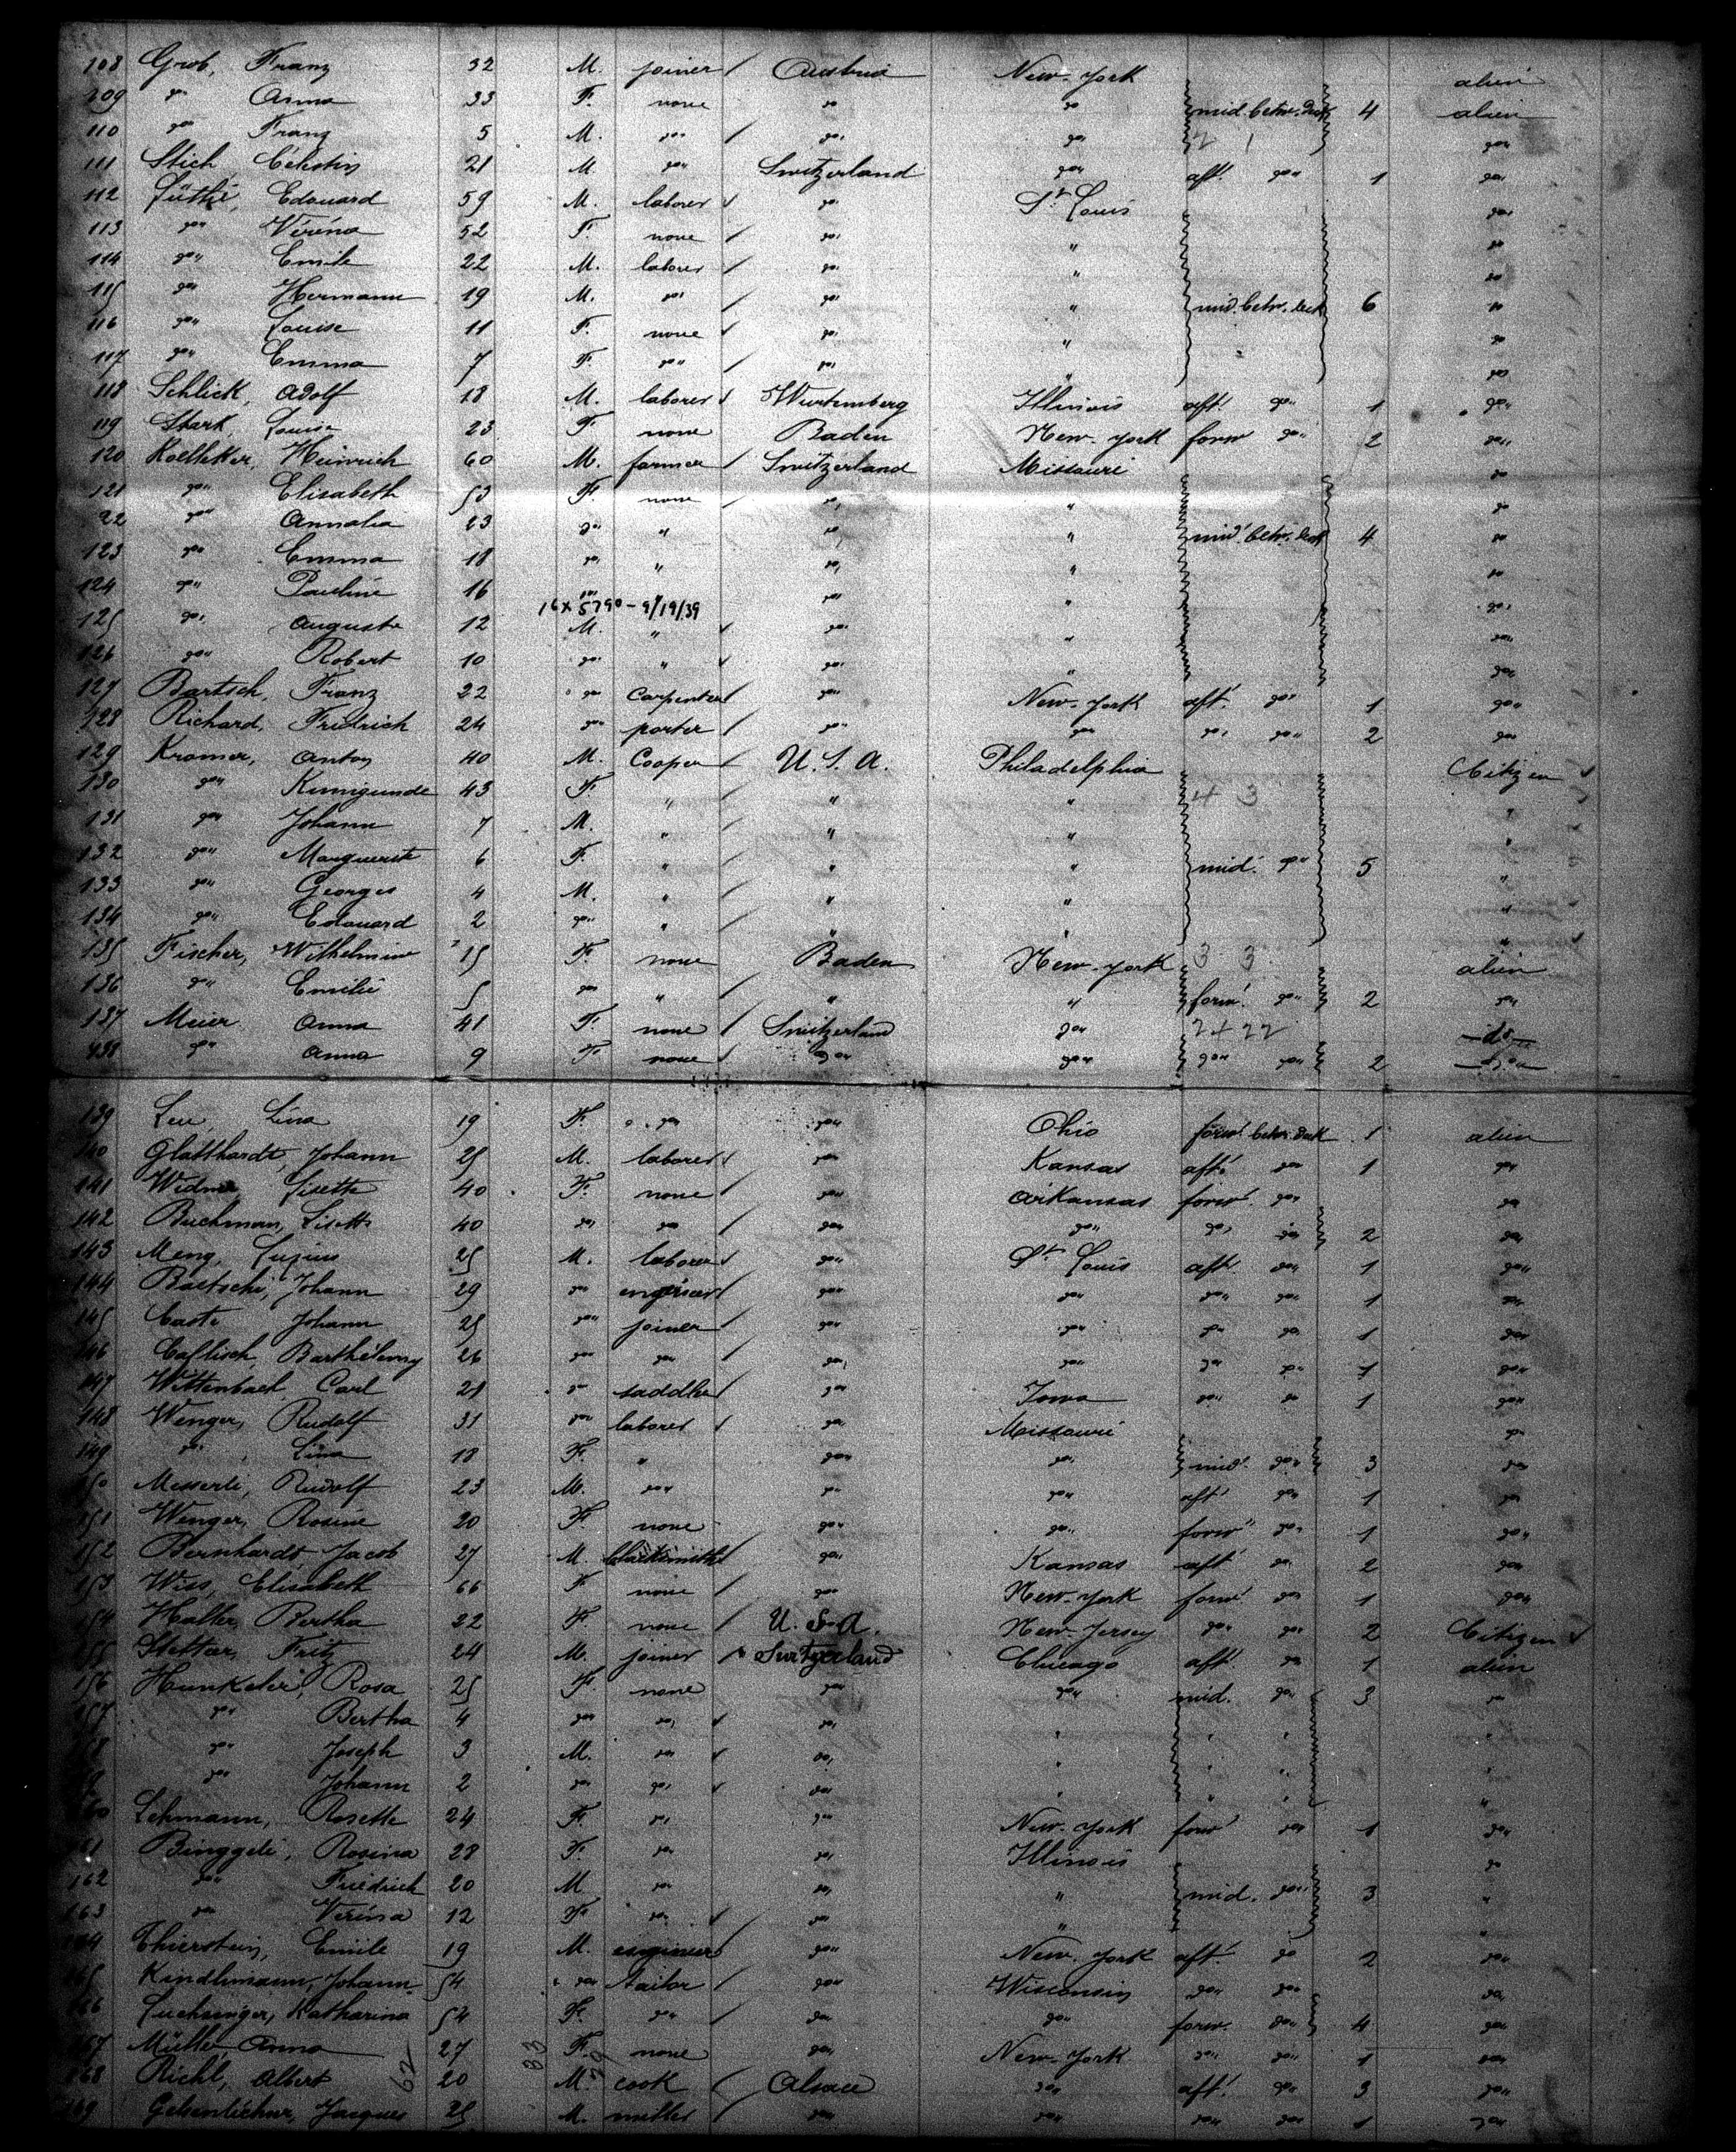 108 Grob, Franz 32 M. joiner / Austria New-York alien
109 do Anna 33 F. none do do mid. betw. deck 4 alien
110 do Franz 5 M. do / do do 2 1 do
111 Stich Célestin 21 M. do Switzerland do aft. do 1 do
112 Lüthi, Edouard 59 M. laborer do St Louis do
113 do Viréna 52 F. none / do " do
114 do Emile 22 M. laborer / do " do
115 do Hermann 19 M. do / do " mid. betw. deck 6 do
116 do Louise 11 F. none do " do
117 do Emma 7 F. do / do " do
118 Schlick, Adolf 18 M. laborer Wurtemberg Illinois aft. do 1 do
119 Stark, Louise 23 F none Baden New-York forw do 2 do
120 Koelliker, Heinrich 60 M. farmer / Switzerland Missouri do
121 do Elisabeth 53 F. none do " do
22 do Annalia 23 do " do " mid. betw. deck 4 do
123 do Emma 18 do " do " do
124 do Pauline 16 do do " do
16x5790-9/19/39
125 do Auguste 12 M. " do " do
126 do Robert 10 do " do " do
127 Bartsch, Franz 22 do carpenter do New-York aft. do 1 do
128 Richard, Fridrich 24 do porter / do do do do 2 do
129 Kramer, Anton 40 M. Cooper / U. S. A. Philadelphia Citizen
130 do Kunigunde 43 F " " " 4 3 "
131 do Johann 7 M. " " " "
132 do Marguerite 6 F. " " " mid. do 5 "
133 do Georges 4 M. " " " "
134 do Edouard 2 do " " " "
135 Fischer, Wilhelmine 15 F. none Baden New-York 3 3 alien
136 do Emilie 5 do " " " forw. do 2 do
137 Meier Anna 41 F. none / Switzerland do 2 + 22 do
138 do Anna 9 F. none do do do do 2 do
139 Leu, Lina 19 F. do do Ohio forw. betw. deck 1 alien
140 Glatthardt, Johann 25 M. laborer do Kansas aft. do 1 do
141 Widmer, Lisette 40 F. none / do Arkansas forw. do do
142 Buchman, Lisette 40 do do / do do do do 2 do
143 Meng, 25 M. laborer do St Louis aft. do 1 do
144 Baetschi, Johann 29 do engineer do do do do 1 do
145 Johann 25 do joiner / do do do do 1 do
146 Caflisch, Barthélemy 26 do do / do do do do 1 do
147 Wittenbach Carl 21 do saddler do Iowa do do 1 do
148 Wenger, Rudolf 31 do laborer do Missouri do
149 do Lina 18 F. " do do mid. do 3 do
150 Messerli, Rudolf 23 M. do do do aft. do 1 do
151 Wenger, Rosine 20 F. none do do forw do 1 do
152 Bernhardt, Jacob 27 M. blacksmith do Kansas aft do 2 do
153 Wiss, Elisabeth 66 F none / do New-York forw. do 1 do
154 Haller, Bertha 22 F. none / U. S. A. New-Jersey do do 2 Citizen
155 Stettler, Fritz 24 M. joiner Switzerland Chicago aft. do 1 alien
156 Hunkeler, Rosa 25 F none do do mid. do 3 do
157 do Bertha 4 do do do " " " "
158 do Joseph 3 M. do do " " " "
159 do Johann 2 do do do " " " "
160 Lehmann, Rosette 24 F. do do New-York forw do 1 do
161 Binggeli, Rosina 28 F. do do Illinois do
162 do Friedrich 20 M do do " mid. do 3 "
163 do Verina 12 F. do do " "
164 Thierstein, Emile 19 M. engineer do New-York aft. do 2 do
165 Kindlimann, Johann 54 do tailor / do Wisconsin do do do
166 Luchsinger, Katharina 54 F. do do do forw. do 4 do
167 Müller Anna 27 F. none do New-York do do 1 do
168 Richl, Albert 20 M. cook / Alsace do aft. do 3 do
169 Jacques 25 M. miller do do do do 1 do
62 33